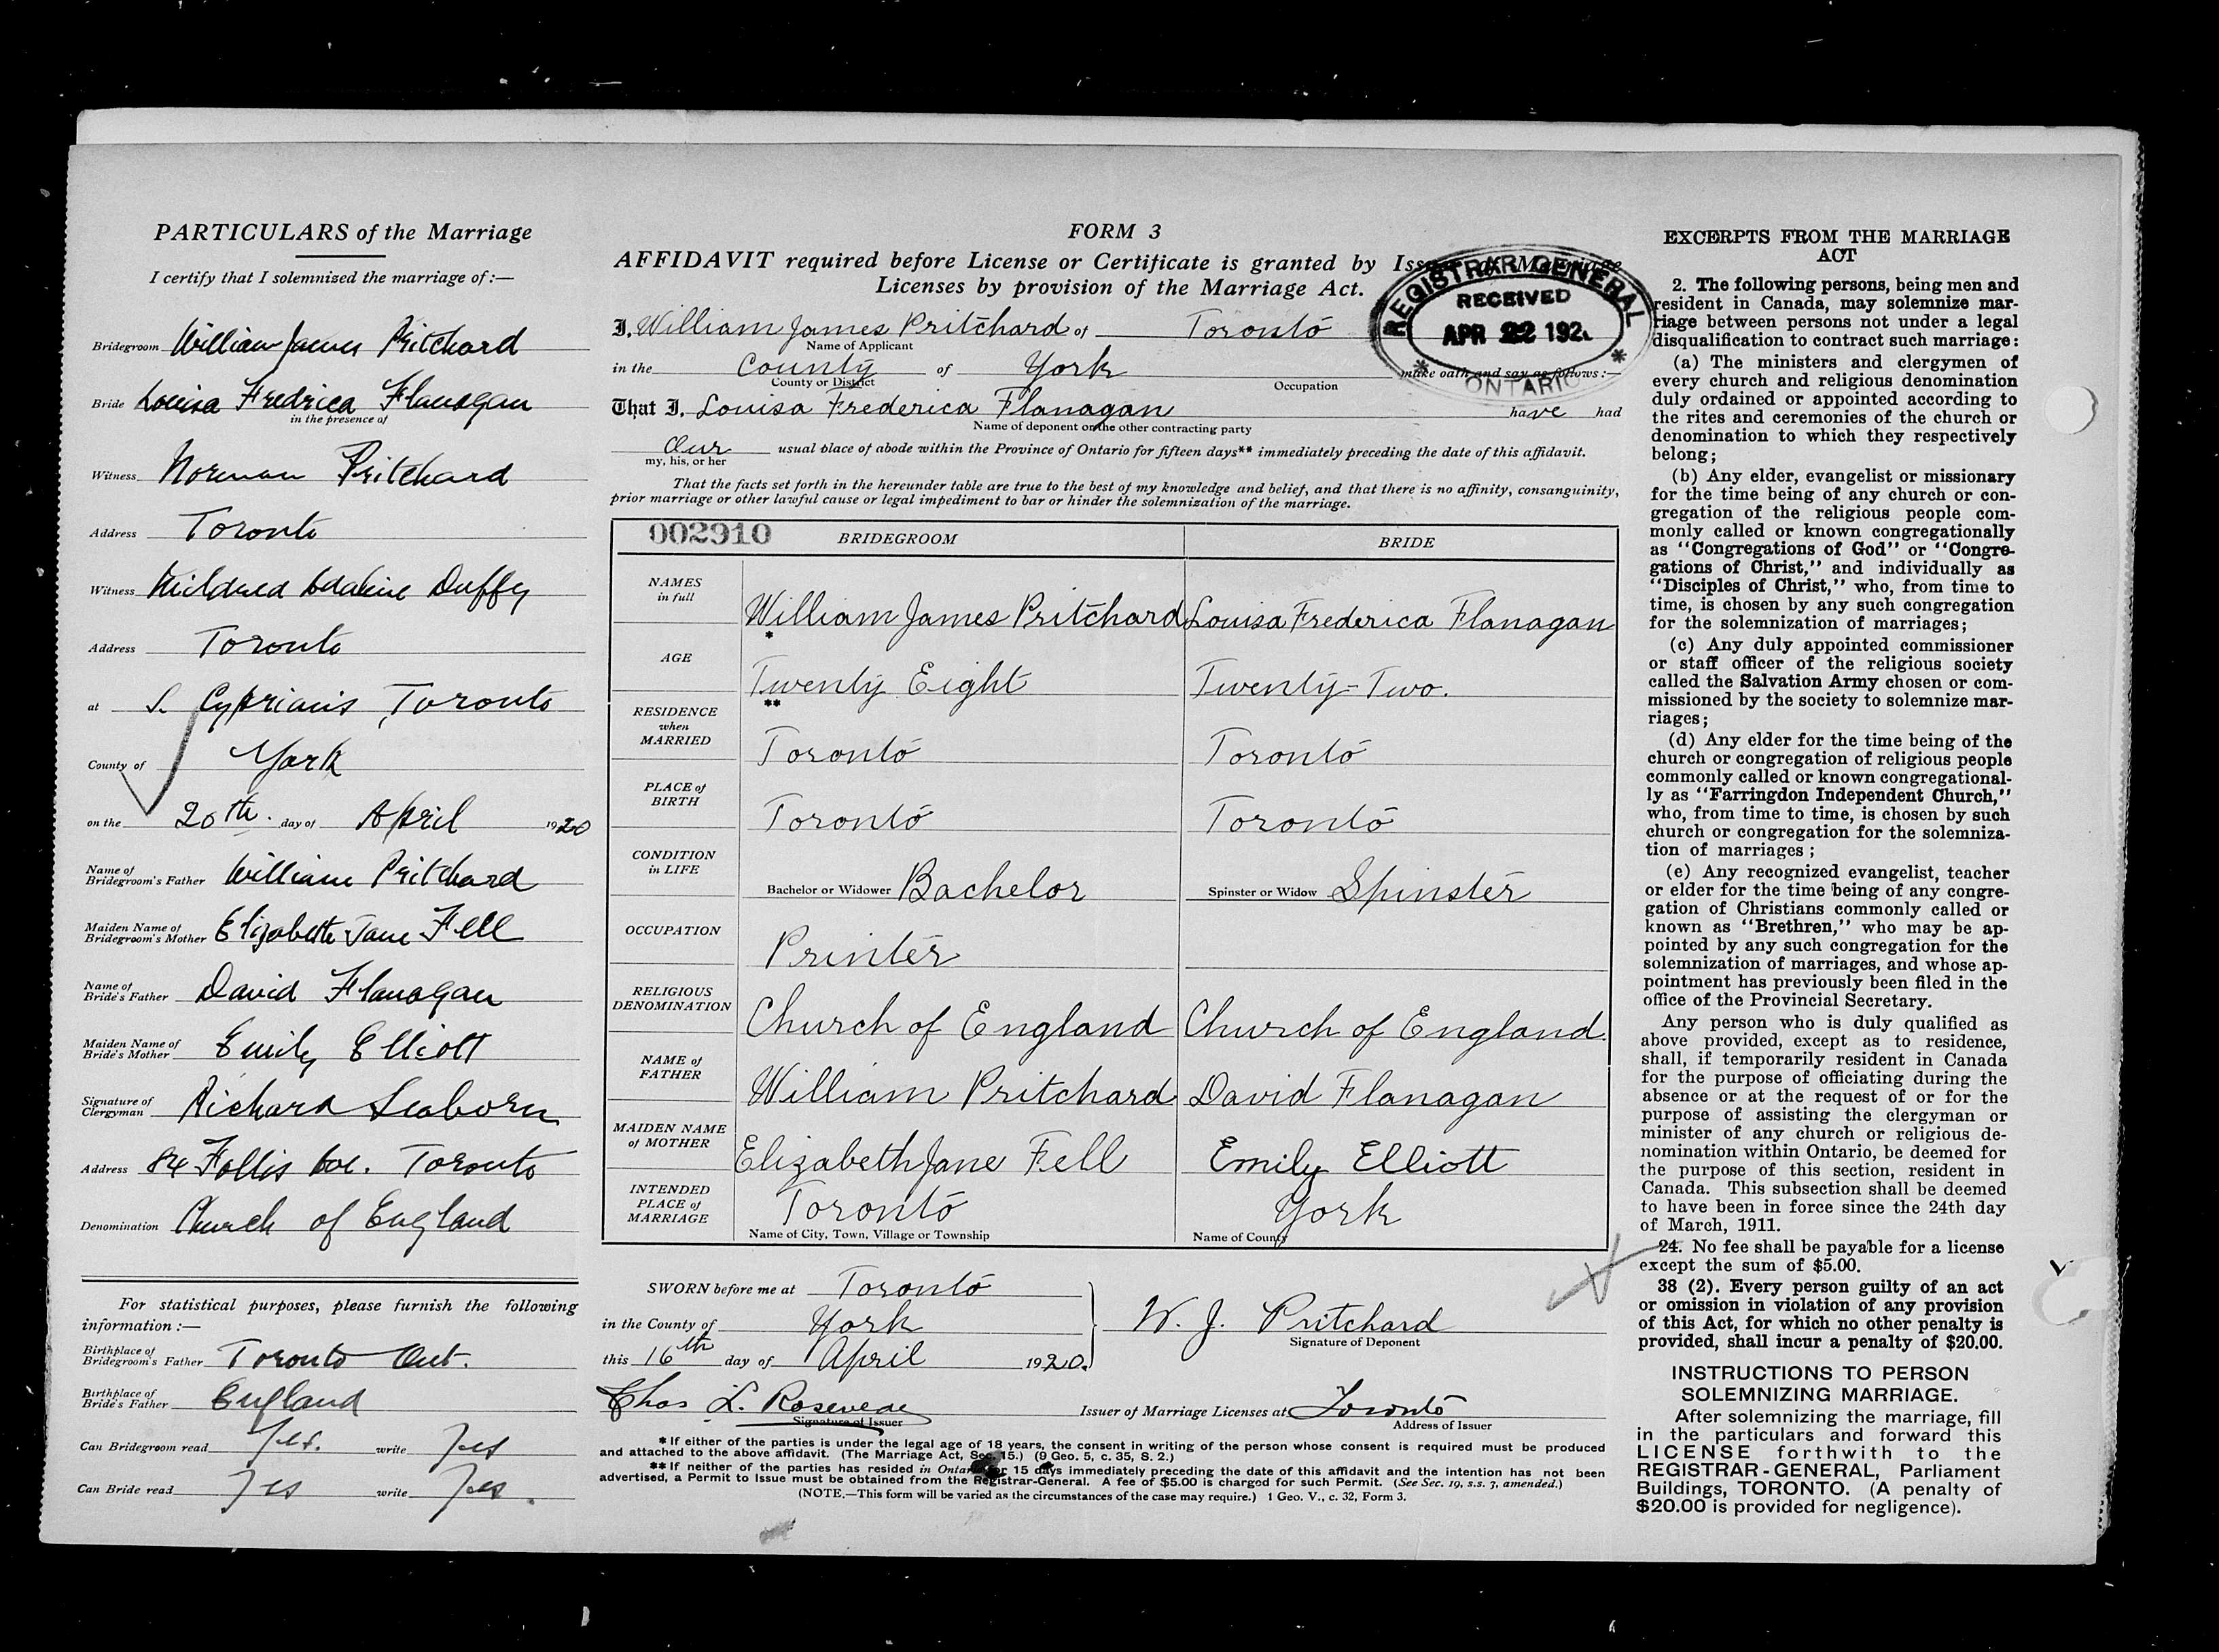 PARTICULARS of the Marriage
I certify that I solemnized the marriage of:—
Bridegroom William James Pritchard
Bride Louisa Fredrica Flanagan
in the presence of
Witness Norman Pritchard
Address Toronto
Witness Mildred Duffy
Address Toronto
at S. Cyprian's, Toronto
County of York
on the 20th. day of April 1920
Name of
Bridegroom's Father William Pritchard
Maiden Name of
Bridegroom's Mother Elizabeth Jane Fell
Name of
Bride's Father David Flanagan
Maiden Name of
Bride's Mother Emily Elliott
Signature of
Clergyman Richard Seaborn
Address 84 Follis Ave. Toronto
Denomination Church of England
For statistical purposes, please furnish the following
information:—
Birthplace of
Bridegroom's Father Toronto Ont.
Birthplace of
Bride's Father England
Can Bridegroom read Yes. write Yes
Can Bride read Yes write Yes.
FORM 3
AFFIDAVIT required before License or Certificate is granted by Issuer of Marriage
Licenses by provision of the Marriage Act.
REGISTRAR GENERAL
RECEIVED
APR 22 192
* ONTARIO *
I, William James Pritchard of Toronto
Name of Applicant
in the County of York make oath and say as follows:—
County or District Occupation
That I, Louisa Frederica Flanagan have had
Name of deponent or the other contracting party
Our usual place of abode within the Province of Ontario for fifteen days** immediately preceding the date of this affidavit.
my, his, or her
That the facts set forth in the hereunder table are true to the best of my knowledge and belief, and that there is no affinity, consanguinity,
prior marriage or other lawful cause or legal impediment to bar or hinder the solemnization of the marriage.
002910 BRIDEGROOM BRIDE
NAMES
in full
William James Pritchard Louisa Frederica Flanagan
*
AGE
Twenty Eight Twenty-Two.
**
RESIDENCE
when
MARRIED
Toronto Toronto
PLACE of
BIRTH
Toronto Toronto
CONDITION
in LIFE
Bachelor or Widower Bachelor Spinster or Widow Spinster
OCCUPATION
Printer
RELIGIOUS
DENOMINATION
Church of England Church of England.
NAME of
FATHER
William Pritchard David Flanagan
MAIDEN NAME
of MOTHER
Elizabeth Jane Fell Emily Elliott
INTENDED
PLACE of
MARRIAGE
Toronto York
Name of City, Town, Village or Township Name of County
SWORN before me at Toronto
in the County of York
this 16th day of April 1920.
W. J. Pritchard
Signature of Deponent
Chas L. Rosevear Issuer of Marriage Licenses at Toronto
Signature of Issuer Address of Issuer
* If either of the parties is under the legal age of 18 years, the consent in writing of the person whose consent is required must be produced
and attached to the above affidavit. (The Marriage Act, Sec. 15.) (9 Geo. 5, c. 35, S. 2.)
** If neither of the parties has resided in Ontario for 15 days immediately preceding the date of this affidavit and the intention has not been
advertised, a Permit to Issue must be obtained from the Registrar-General. A fee of $5.00 is charged for such Permit. (See Sec. 19, s.s. 3, amended.)
(NOTE.—This form will be varied as the circumstances of the case may require.) 1 Geo. V., c. 32, Form 3.
EXCERPTS FROM THE MARRIAGE
ACT
2. The following persons, being men and
resident in Canada, may solemnize mar-
riage between persons not under a legal
disqualification to contract such marriage:
(a) The ministers and clergymen of
every church and religious denomination
duly ordained or appointed according to
the rites and ceremonies of the church or
denomination to which they respectively
belong;
(b) Any elder, evangelist or missionary
for the time being of any church or con-
gregation of the religious people com-
monly called or known congregationally
as "Congregations of God" or "Congre-
gations of Christ," and individually as
"Disciples of Christ," who, from time to
time, is chosen by any such congregation
for the solemnization of marriages;
(c) Any duly appointed commissioner
or staff officer of the religious society
called the Salvation Army chosen or com-
missioned by the society to solemnize mar-
riages;
(d) Any elder for the time being of the
church or congregation of religious people
commonly called or known congregational-
ly as "Farringdon Independent Church,"
who, from time to time, is chosen by such
church or congregation for the solemniza-
tion of marriages;
(e) Any recognized evangelist, teacher
or elder for the time being of any congre-
gation of Christians commonly called or
known as "Brethren," who may be ap-
pointed by any such congregation for the
solemnization of marriages, and whose ap-
pointment has previously been filed in the
office of the Provincial Secretary.
Any person who is duly qualified as
above provided, except as to residence,
shall, if temporarily resident in Canada
for the purpose of officiating during the
absence or at the request of or for the
purpose of assisting the clergyman or
minister of any church or religious de-
nomination within Ontario, be deemed for
the purpose of this section, resident in
Canada. This subsection shall be deemed
to have been in force since the 24th day
of March, 1911.
24. No fee shall be payable for a license
except the sum of $5.00.
38 (2). Every person guilty of an act
or omission in violation of any provision
of this Act, for which no other penalty is
provided, shall incur a penalty of $20.00.
INSTRUCTIONS TO PERSON
SOLEMNIZING MARRIAGE.
After solemnizing the marriage, fill
in the particulars and forward this
LICENSE forthwith to the
REGISTRAR-GENERAL, Parliament
Buildings, TORONTO. (A penalty of
$20.00 is provided for negligence).